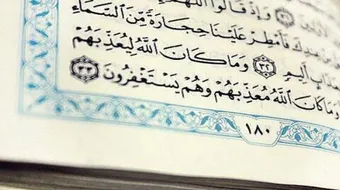 وَإِذْ قَالُوا اللَّهُمَّ
فَأَمْطِرْ عَلَيْنَا حِجَارَةً مِّنَ السَّمَاءِ
أَلِيمٍ ﴿٣٢﴾ وَمَا كَانَ اللَّهُ لِيُعَذِّبَهُمْ
وَمَا كَانَ اللَّهُ مُعَذِّبَهُمْ وَهُمْ يَسْتَغْفِرُونَ ﴿٣٣﴾
١٨٠